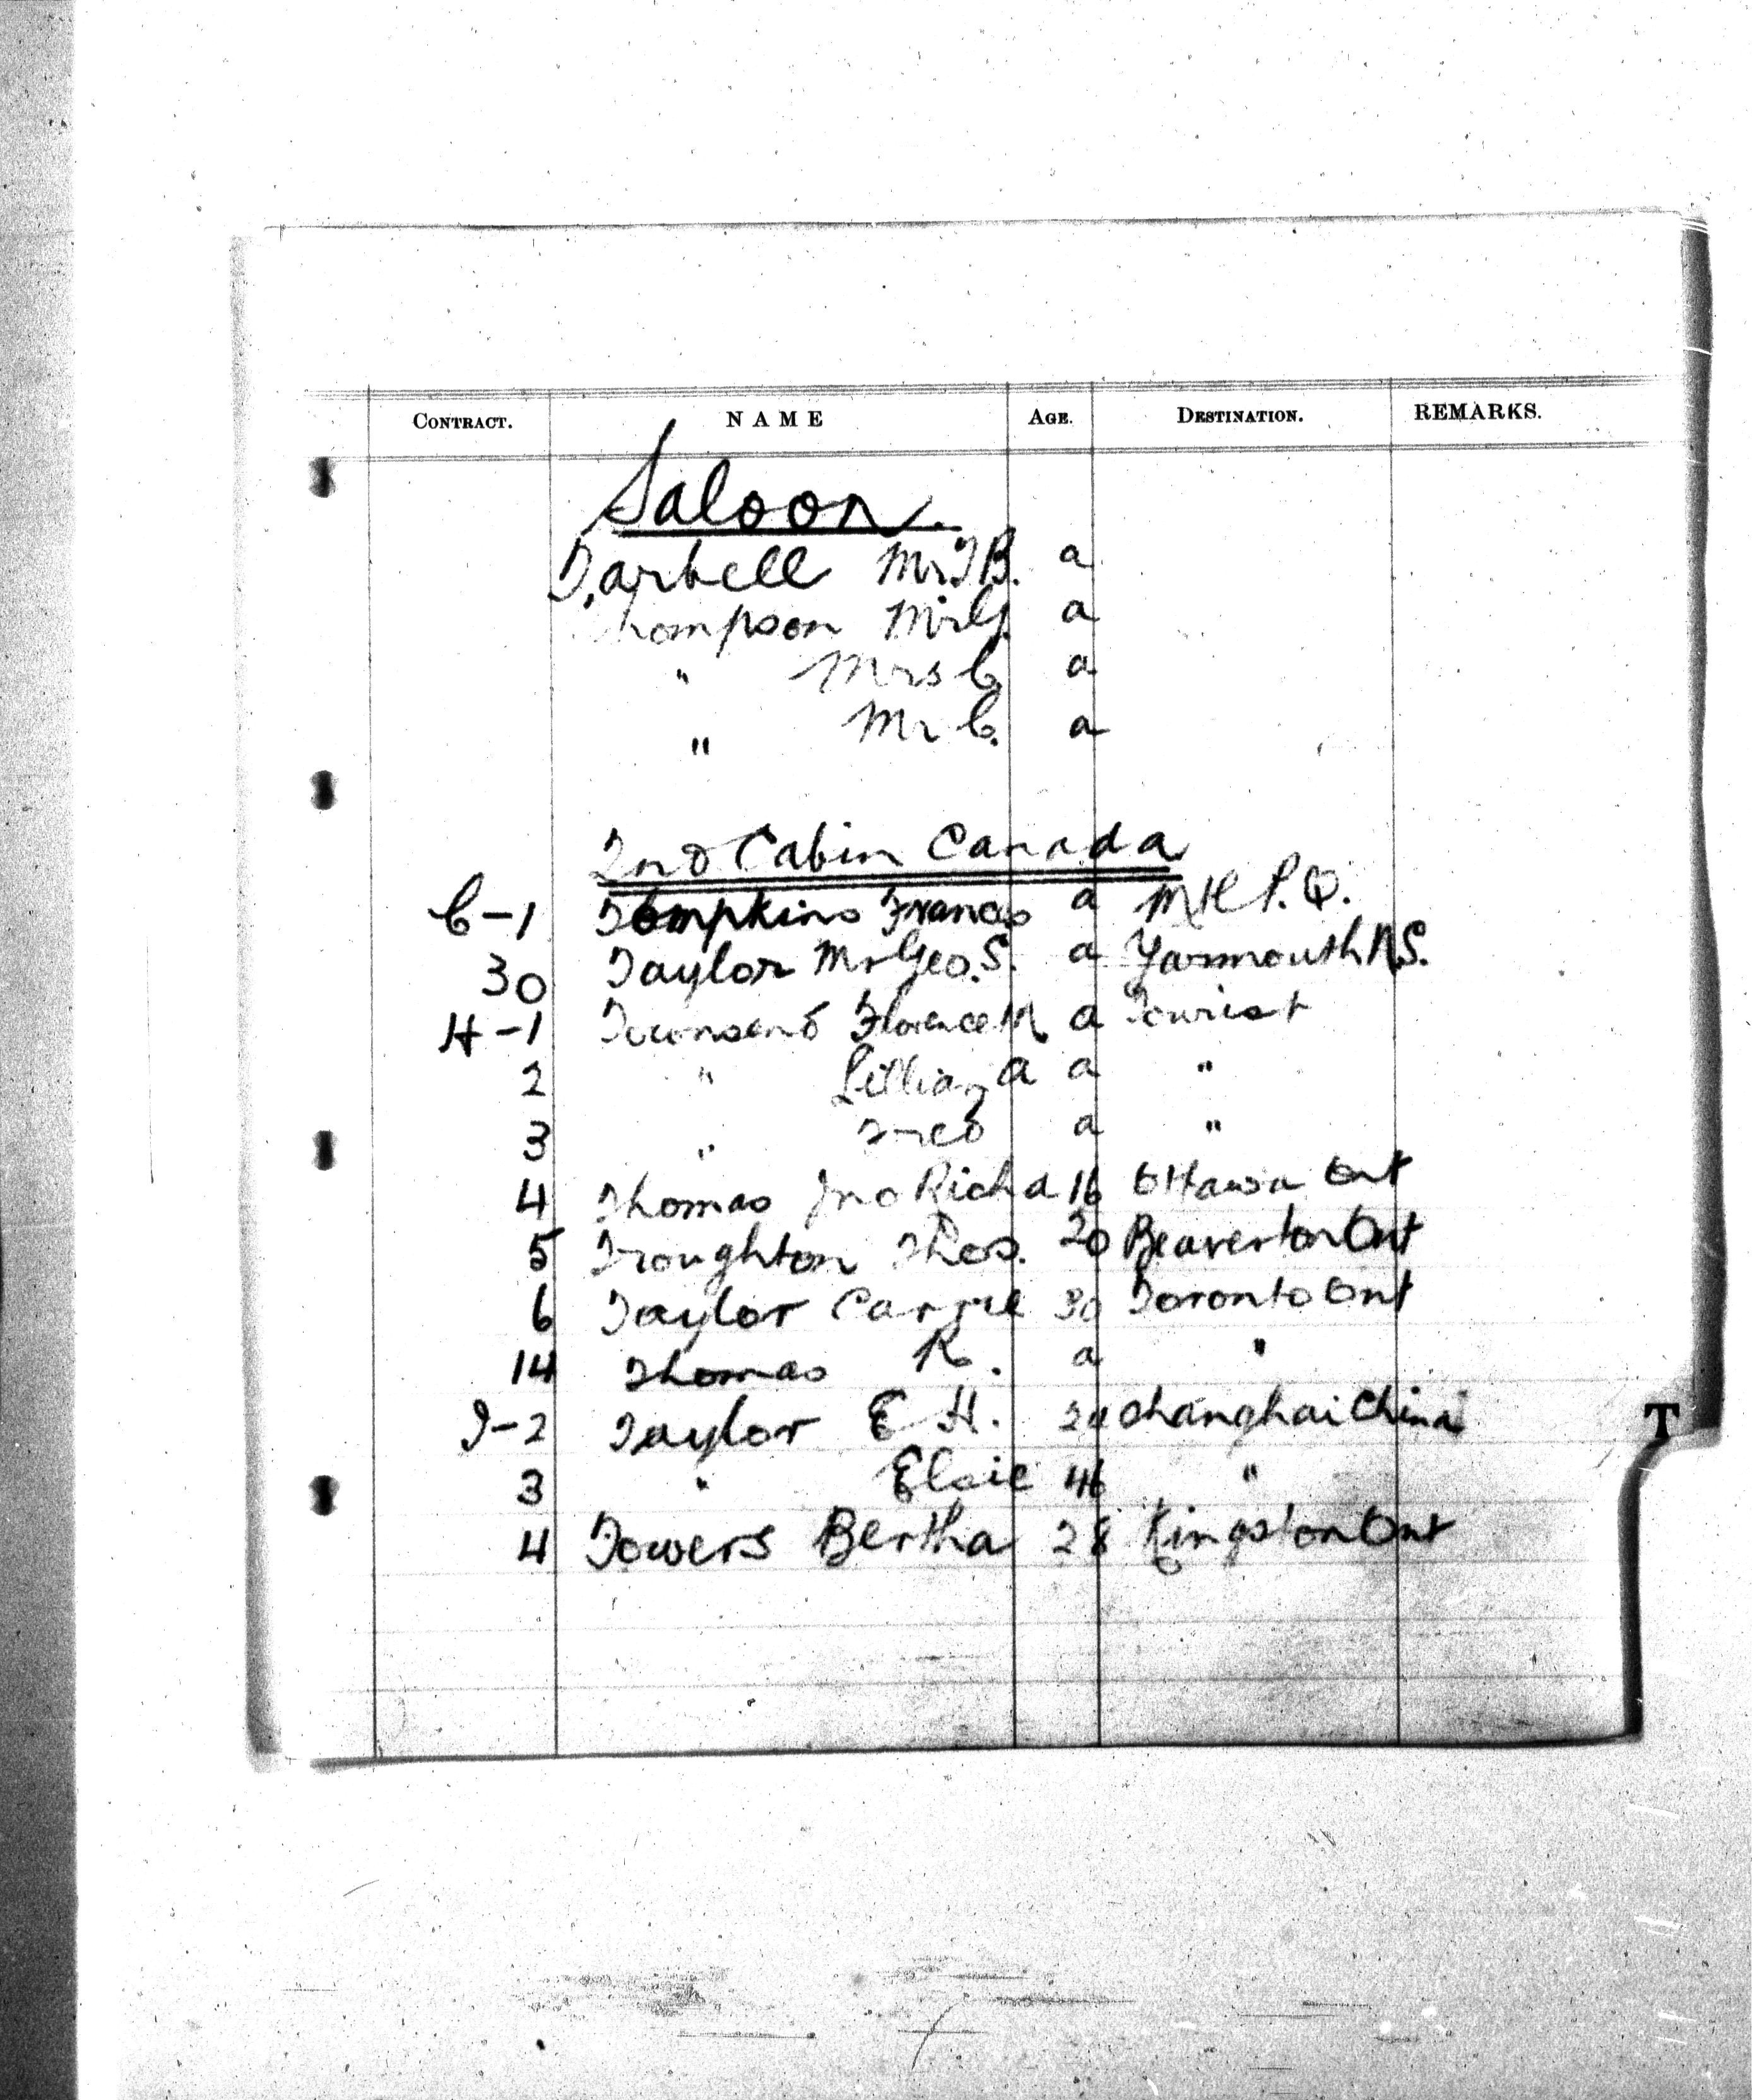 CONTRACT. NAME AGE. DESTINATION. REMARKS.
Saloon.
Tarbell Mr. T B. a
Thompson Mr G. a
" Mrs C. a
" Mr C. a
2nd Cabin Canada
C-1 Tompkins Francis a P.Q.
30 Taylor Mr Geo. S. a Yarmouth N.S.
H-1 Townsend Florence M a Tourist
2 " Lillian A a "
3 " Fred a "
4 Thomas Jno Richd 16 Ottawa Ont
5 Troughton Thos. 20 Beaverton Ont
6 Taylor Carrie 30 Toronto Ont
14 Thomas R. a "
J-2 Taylor E H. Shanghai China
T
3 " Elsie 46 "
4 Towers Bertha 28 Kingston Ont